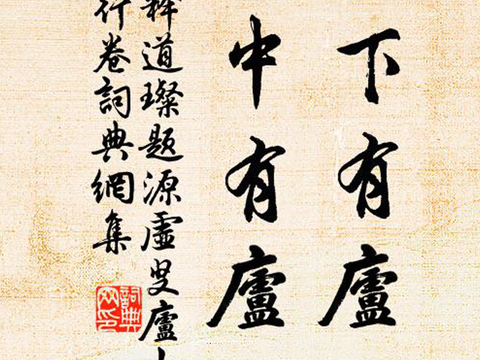 下有廬
中有廬
釋道璨題源虛叟廬
行卷詞典網集
詞典
网印